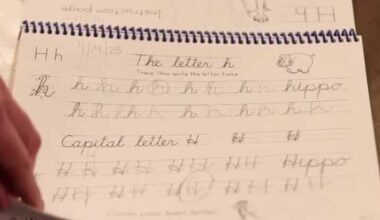 Instruction page
H h
H h 4/14/25 The letter h
Trace, then write the letter twice
h h h h h h h h hippo
h h h h h h h h h
Capital letter H H H
H H H H H H H H Hippo
H H H H H H H H